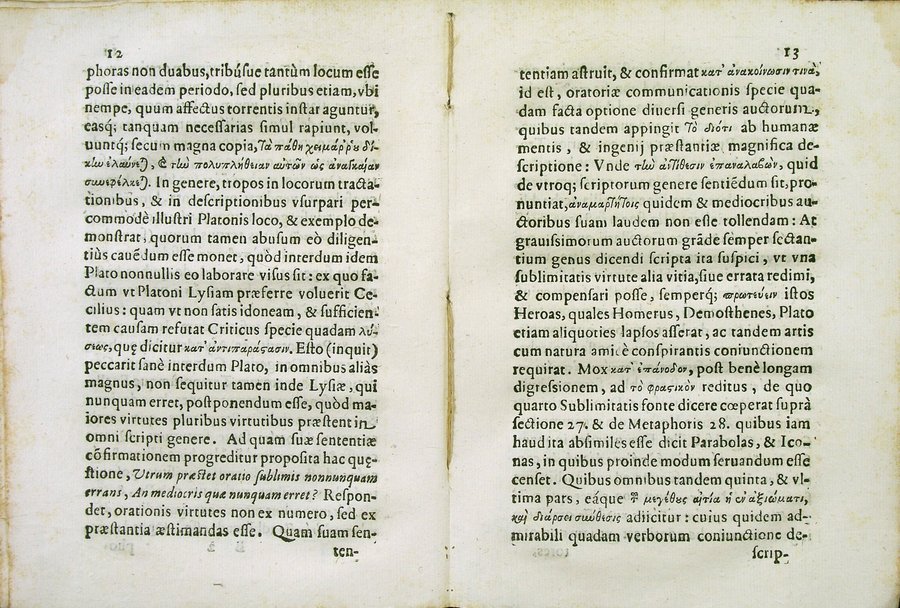 12
phoras non duabus, tribúsue tantùm locum esse
posse in eadem periodo, sed pluribus etiam, vbi
nempe, quum affectus torrentis instar aguntur,
easq; tanquam necessarias simul rapiunt, vol-
uuntq; secum magna copia, Τὰ πάθη χειμάῤῥου δί-
κην ἐλαύνεται, & τὴν πολυπλήθειαν αὐτῶν ὡς ἀναγκαίαν
συνεφέλκεται. In genere, tropos in locorum tracta-
tionibus, & in descriptionibus vsurpari per-
commodè illustri Platonis loco, & exemplo de-
monstrat, quorum tamen abusum eò diligen-
tiùs cauēdum esse monet, quòd interdum idem
Plato nonnullis eo laborare visus sit: ex quo fa-
ctum vt Platoni Lysiam præferre voluerit Ce-
cilius: quam vt non satis idoneam, & sufficien-
tem causam refutat Criticus specie quadam λύ-
σεως, quę dicitur κατ' ἀντιπαράστασιν. Esto (inquit)
peccarit sanè interdum Plato, in omnibus aliàs
magnus, non sequitur tamen inde Lysiæ, qui
nunquam erret, postponendum esse, quòd ma-
iores virtutes pluribus virtutibus præstent in
omni scripti genere. Ad quam suæ sententiæ
cōfirmationem progreditur proposita hac quę-
stione, Vtrum præstet oratio sublimis nonnunquam
errans, An mediocris quæ nunquam erret? Respon-
det, orationis virtutes non ex numero, sed ex
præstantia æstimandas esse. Quam suam sen-
ten-
13
tentiam astruit, & confirmat κατ' ἀνακοίνωσιν τινὰ,
id est, oratoriæ communicationis specie qua-
dam facta optione diuersi generis auctorum,
quibus tandem appingit Τὸ διότι ab humanæ
mentis, & ingenij præstantiæ magnifica de-
scriptione: Vnde τὴν ἀντίθεσιν ἐπαναλαβὼν, quid
de vtroq; scriptorum genere sentiēdum sit, pro-
nuntiat, ἀναμαρτήτοις quidem & mediocribus au-
ctoribus suam laudem non esse tollendam: At
grauissimorum auctorum grāde semper sectan-
tium genus dicendi scripta ita suspici, vt vna
sublimitatis virtute alia vitia, siue errata redimi,
& compensari posse, semperq; πρωτεύειν istos
Heroas, quales Homerus, Demosthenes, Plato
etiam aliquoties lapsos asserat, ac tandem artis
cum natura amicè conspirantis coniunctionem
requirat. Mox κατ' ἐπάνοδον, post benè longam
digressionem, ad τὸ φραστικὸν reditus, de quo
quarto Sublimitatis fonte dicere cœperat suprà
sectione 27. & de Metaphoris 28. quibus iam
haud ita absimiles esse dicit Parabolas, & Ico-
nas, in quibus proinde modum seruandum esse
censet. Quibus omnibus tandem quinta, & vl-
tima pars, eáque μεγέθους αἰτία ἡ ἐν ἀξιώματι,
καὶ διάρσει σύνθεσις adiicitur: cuius quidem ad-
mirabili quadam verborum coniunctione de-
scrip-